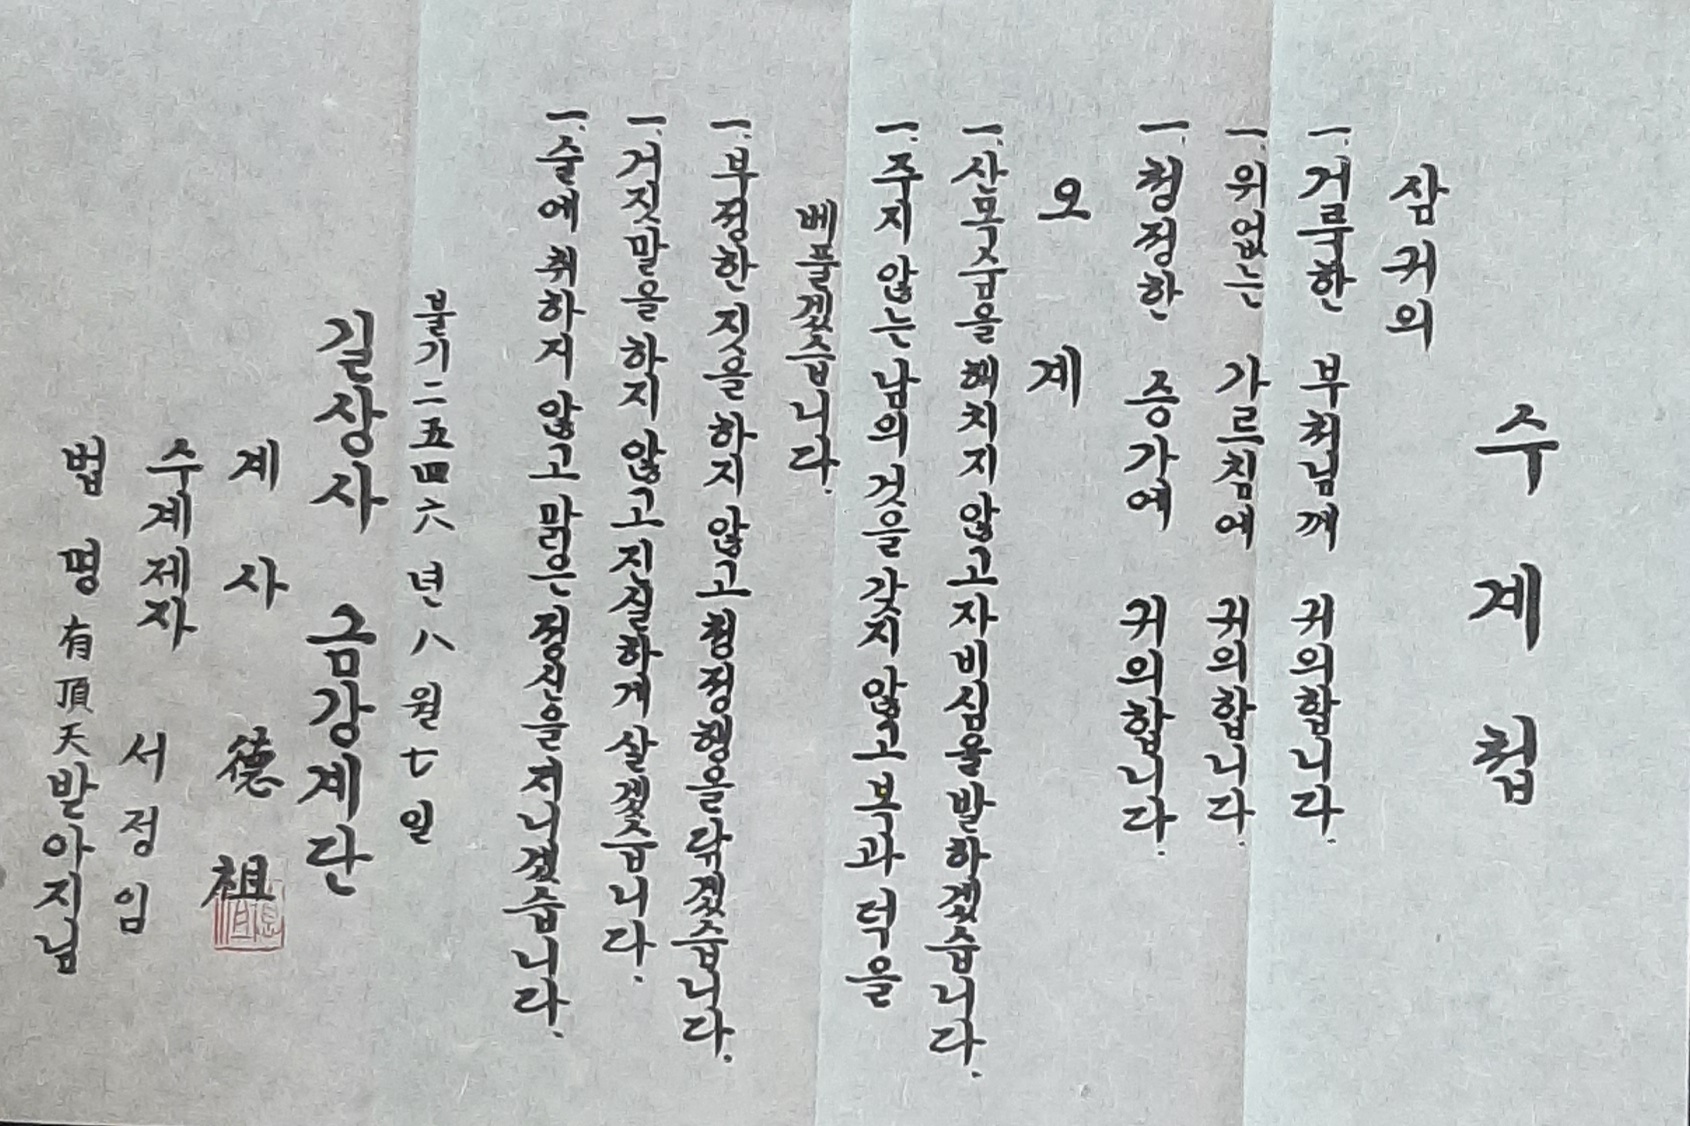 수계첩
삼귀의
一. 거룩한 부처님께 귀의합니다.
一. 위없는 가르침에 귀의합니다.
一. 청정한 승가에 귀의합니다.
오계
一. 산목숨을 해치지 않고 자비심을 발하겠습니다.
一. 주지 않는 남의 것을 갖지 않고 복과 덕을
베풀겠습니다.
一. 부정한 짓을 하지 않고 청정행을 닦겠습니다.
一. 거짓말을 하지 않고 진실하게 살겠습니다.
一. 술에 취하지 않고 맑은 정신을 지니겠습니다.
불기 二五四六 년 八 월 七 일
길상사 금강계단
계사 德祖
수계제자 서정임
법명 有頂天발아지님